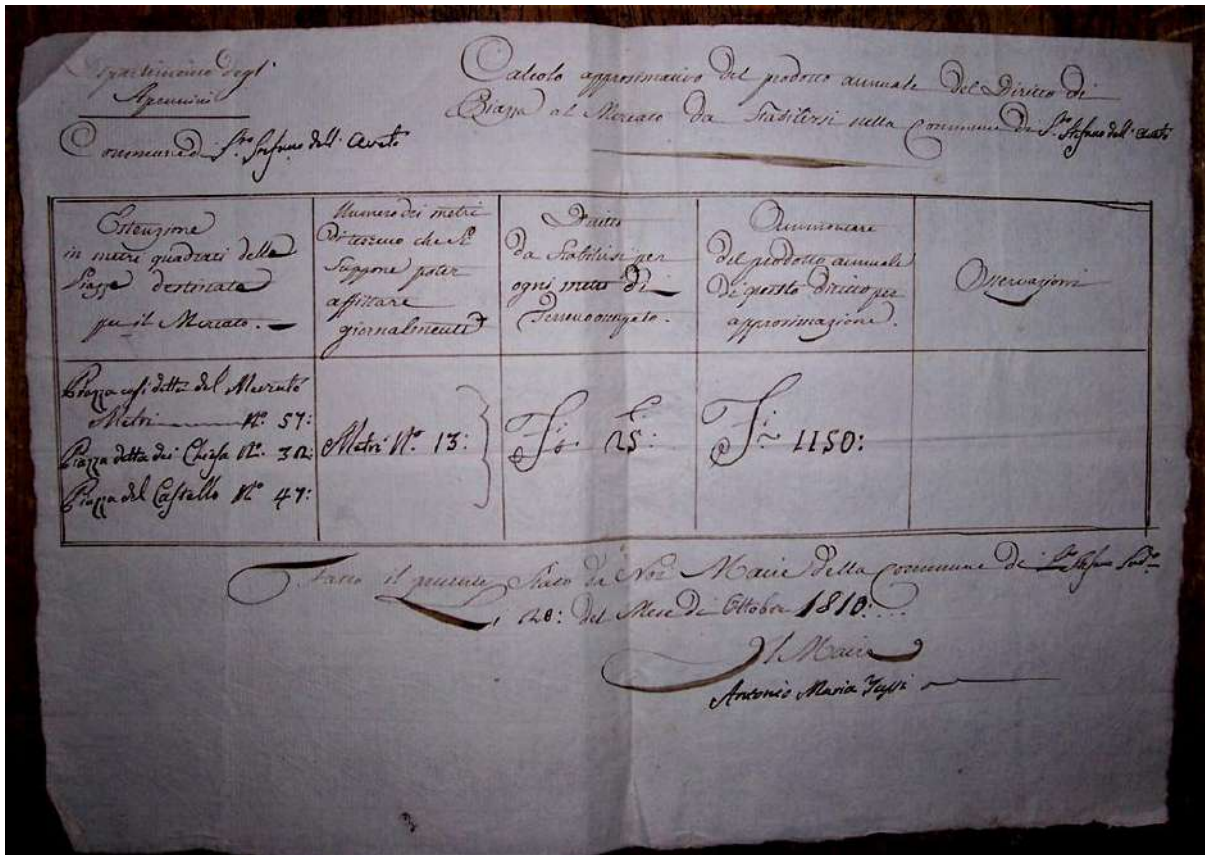 Dipartimento degl'
Apennini
Commune di S.to Stefano dell'Aveto
Calcolo approssimativo del prodotto annuale del Diritto di
Piazza al Mercato da Stabilirsi nella Commune di S.to Stefano dell'Aveto
Estenzione
in metri quadrati delle
Piazze destinate
per il Mercato.
Numero dei metri
di terreno che si
suppone poter
affittare
giornalmente
Diritto
da Stabilirsi per
ogni metro di
Terreno occupato.
Ammontare
del prodotto annuale
di questo diritto per
approssimazione.
Osservazioni
Piazza così detta del Mercato
Metri N.o 57:
Piazza detta dei Chiesa N.o 32:
Piazza del Castello N.o 47:
Metri N.o 13:
25:
1150:
Fatto il presente Stato da Noi Maire della Commune di S.to Stefano Sud.o
Li 28: del Mese di Ottobre 1810:
Il Maire
Antonio Maria Tassi